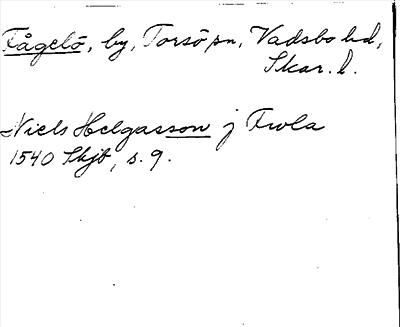 Fågelö, by, Torsö sn, Vadsbo hd,
Skar. l.
Niels Helgasson j Fwla
1540 Skjb, s. 9.